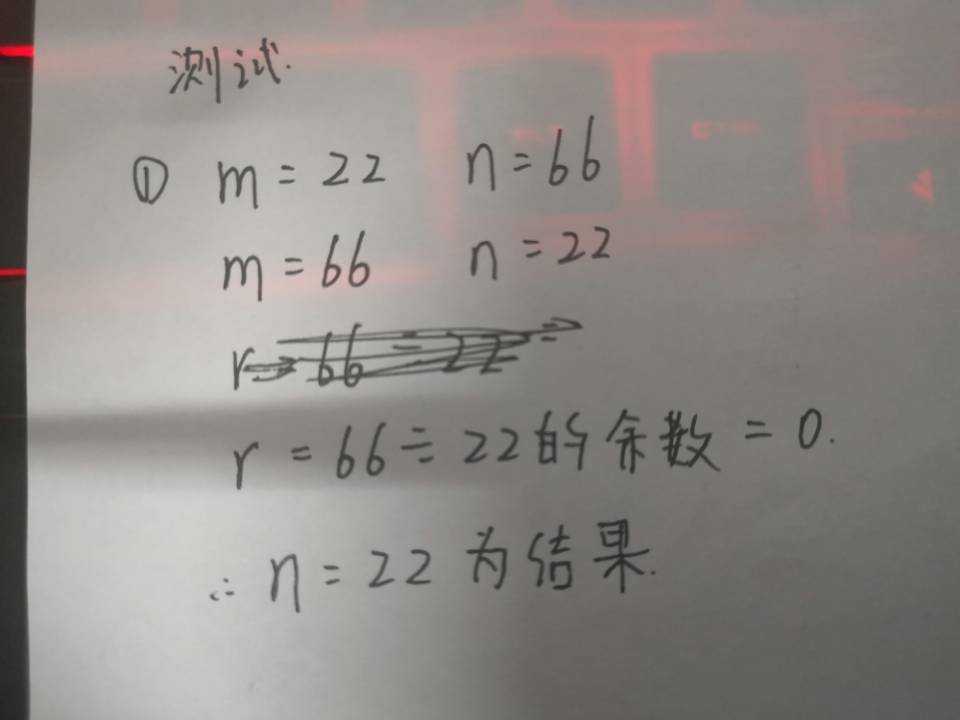 测试.
① m = 22 n = 66
m = 66 n = 22
r = 66 ÷ 22 的余数 = 0.
∴ n = 22 为结果.